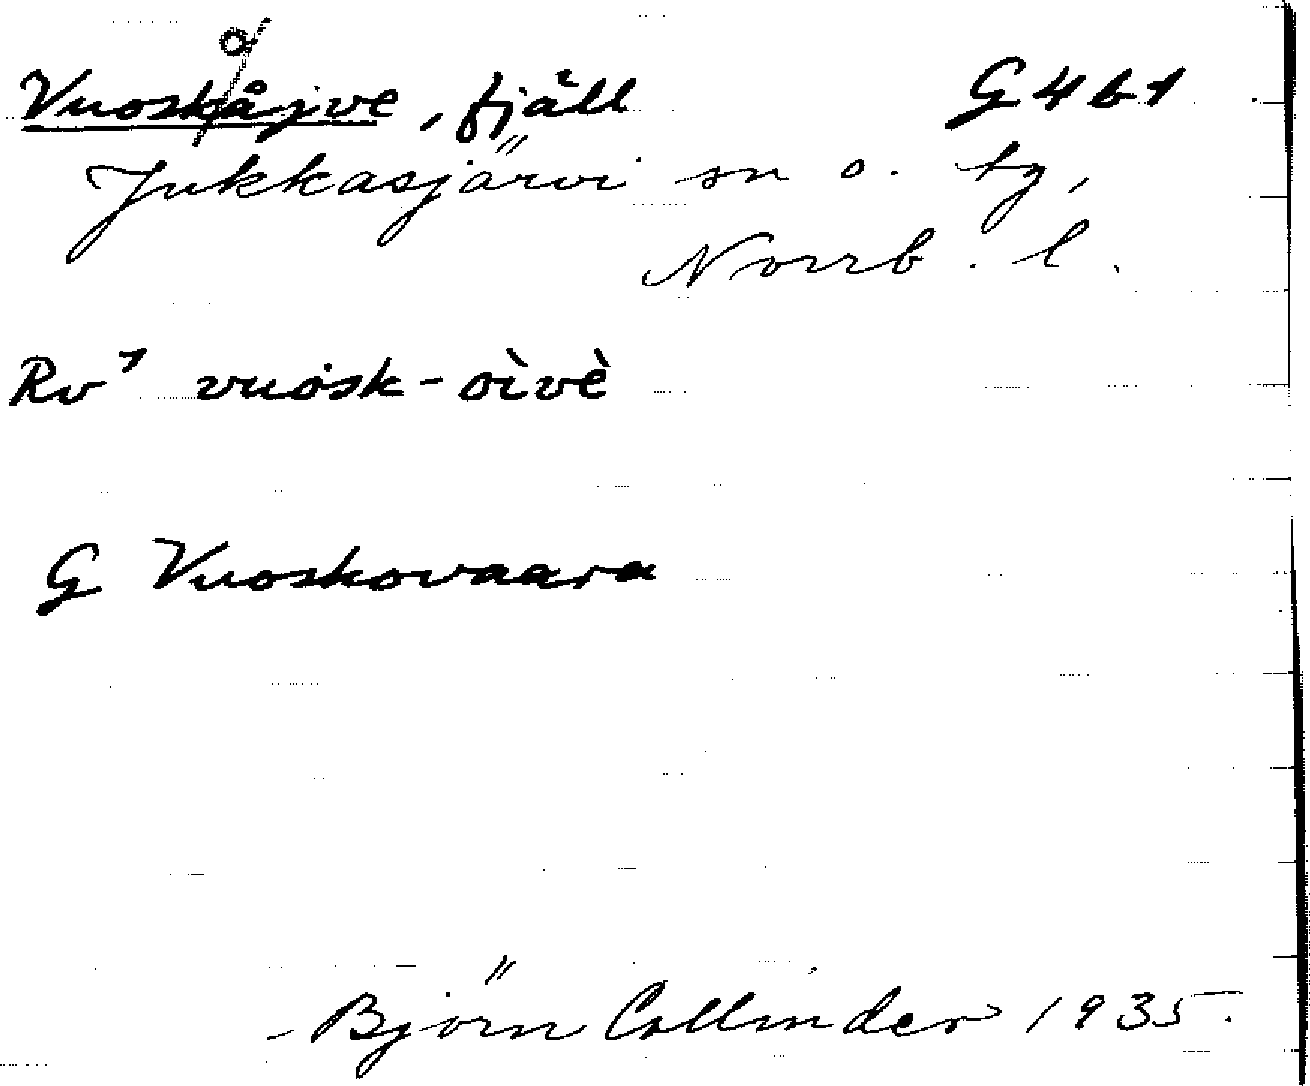 Vuoskåjve, fjäll G4b1
Jukkasjärvi sn o. tg,
Norrb. l.
Rv¹ vuosk-oìvè
G Vuoskovaara
Björn Collinder 1935.